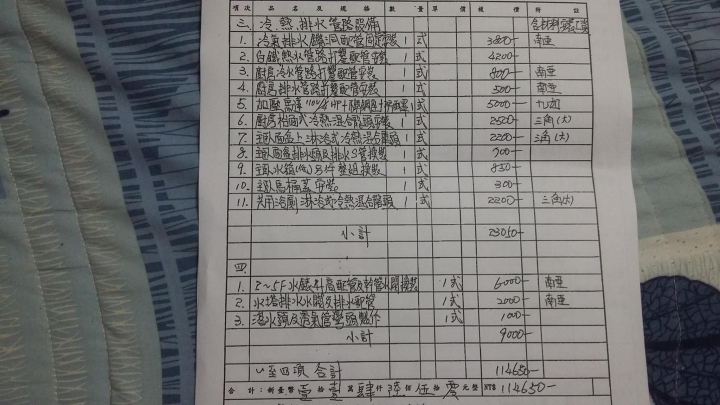 項次 品名及規格 數量 單價 總價 附註
三. 冷.熱.排水管路設備 含材料安裝工資
1. 冷氣排水鑽洞配管固定安裝 1式 3800- 南亞
2. 白鐵熱水管路打鑿配管安裝 1式 4200-
3. 廚房冷水管路打鑿配管安裝 1式 800- 南亞
4. 廚房排水管路打鑿配管安裝 1式 500- 南亞
5. 加壓馬達 1式 5000- 九如
6. 廚房枱面式冷熱混合龍頭安裝 1式 2520- 三角(大)
7. 主臥面盆上淋浴式冷熱混合龍頭 1式 2200- 三角(大)
8. 主臥面盆排水頭及排水S管換裝 1式 900-
9. 主臥水箱另件整組換裝 1式 830-
10. 主臥馬桶蓋安裝 1式 300-
11. 共用冷廁淋浴式冷熱混合龍頭 1式 2200- 三角(大)
小計 23050-
四.
1. 2～5F水錶料局配管及幹管水閥換裝 1式 6000- 南亞
2. 水塔排水水閥及排水配管 1式 2000- 南亞
3. 落水頭及透氣管彎頭製作 1式 1000-
小計 9000-
一至四項 合計 114650-
合計:新臺幣 壹拾壹萬肆仟陸佰伍拾零元整 NT$ 114650-